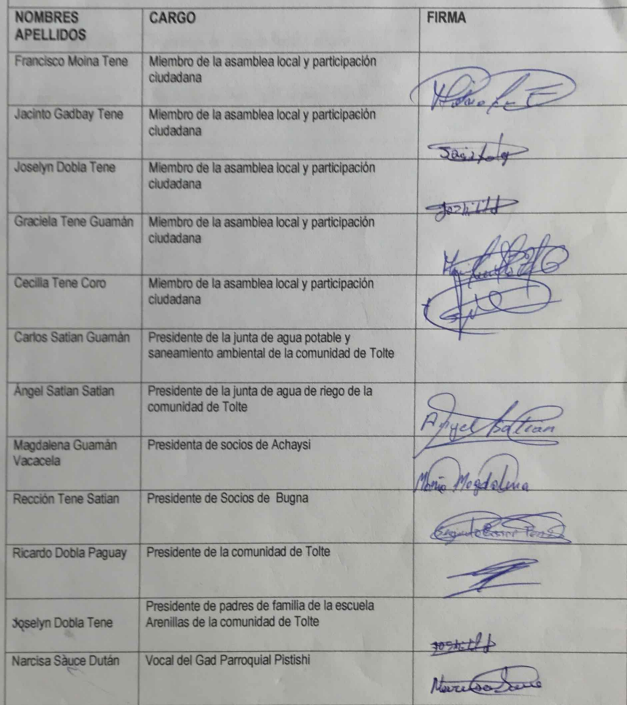 NOMBRES APELLIDOS CARGO FIRMA
Francisco Moina Tene Miembro de la asamblea local y participación
ciudadana
Jacinto Gadbay Tene Miembro de la asamblea local y participación
ciudadana
Joselyn Dobla Tene Miembro de la asamblea local y participación
ciudadana
Graciela Tene Guamán Miembro de la asamblea local y participación
ciudadana
Cecilia Tene Coro Miembro de la asamblea local y participación
ciudadana
Carlos Satian Guamán Presidente de la junta de agua potable y
saneamiento ambiental de la comunidad de Tolte
Ángel Satian Satian Presidente de la junta de agua de riego de la
comunidad de Tolte
Angel Satian
Magdalena Guamán Presidenta de socios de Achaysi
Vacacela
Maria Magdalena
Rección Tene Satian Presidente de Socios de Bugna
Ricardo Dobla Paguay Presidente de la comunidad de Tolte
Presidente de padres de familia de la escuela
Joselyn Dobla Tene Arenillas de la comunidad de Tolte
Narcisa Sauce Dután Vocal del Gad Parroquial Pistishi